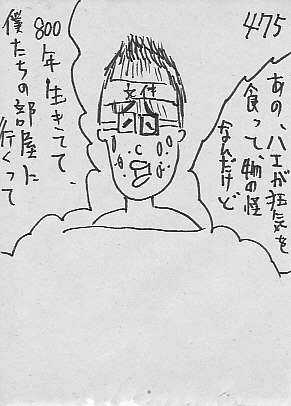 475
あの、ハエが狂気を
食って、物の怪
なんだけど
800年生きてて、
僕たちの部屋に
行くって